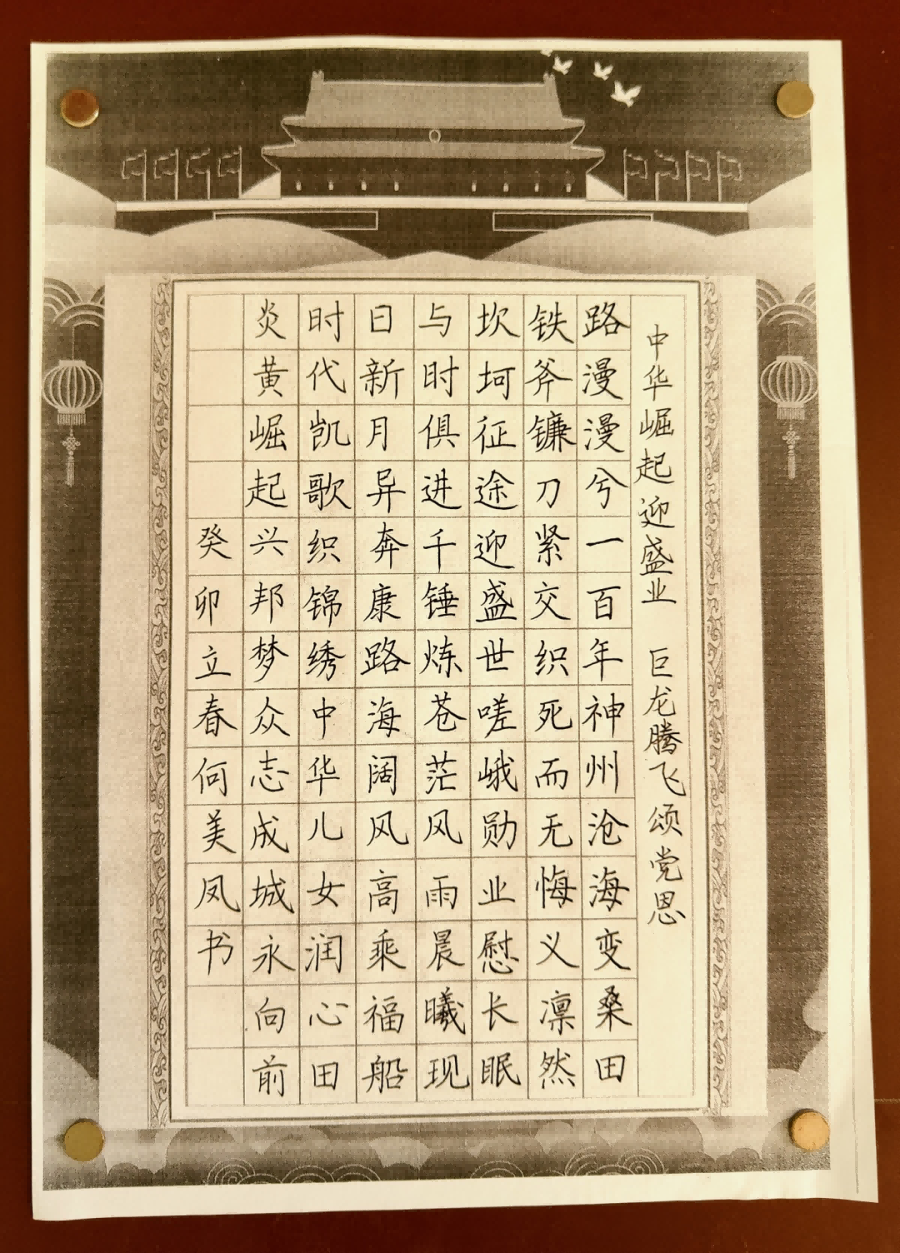 中华崛起迎盛业 巨龙腾飞颂党恩
路漫漫兮一百年神州沧海变桑田
铁斧镰刀紧交织死而无悔义凛然
坎坷征途迎盛世嗟峨勋业慰长眠
与时俱进千锤炼苍茫风雨晨曦现
日新月异奔康路海阔风高乘福船
时代凯歌织锦绣中华儿女润心田
炎黄崛起兴邦梦众志成城永向前
癸卯立春何美凤书